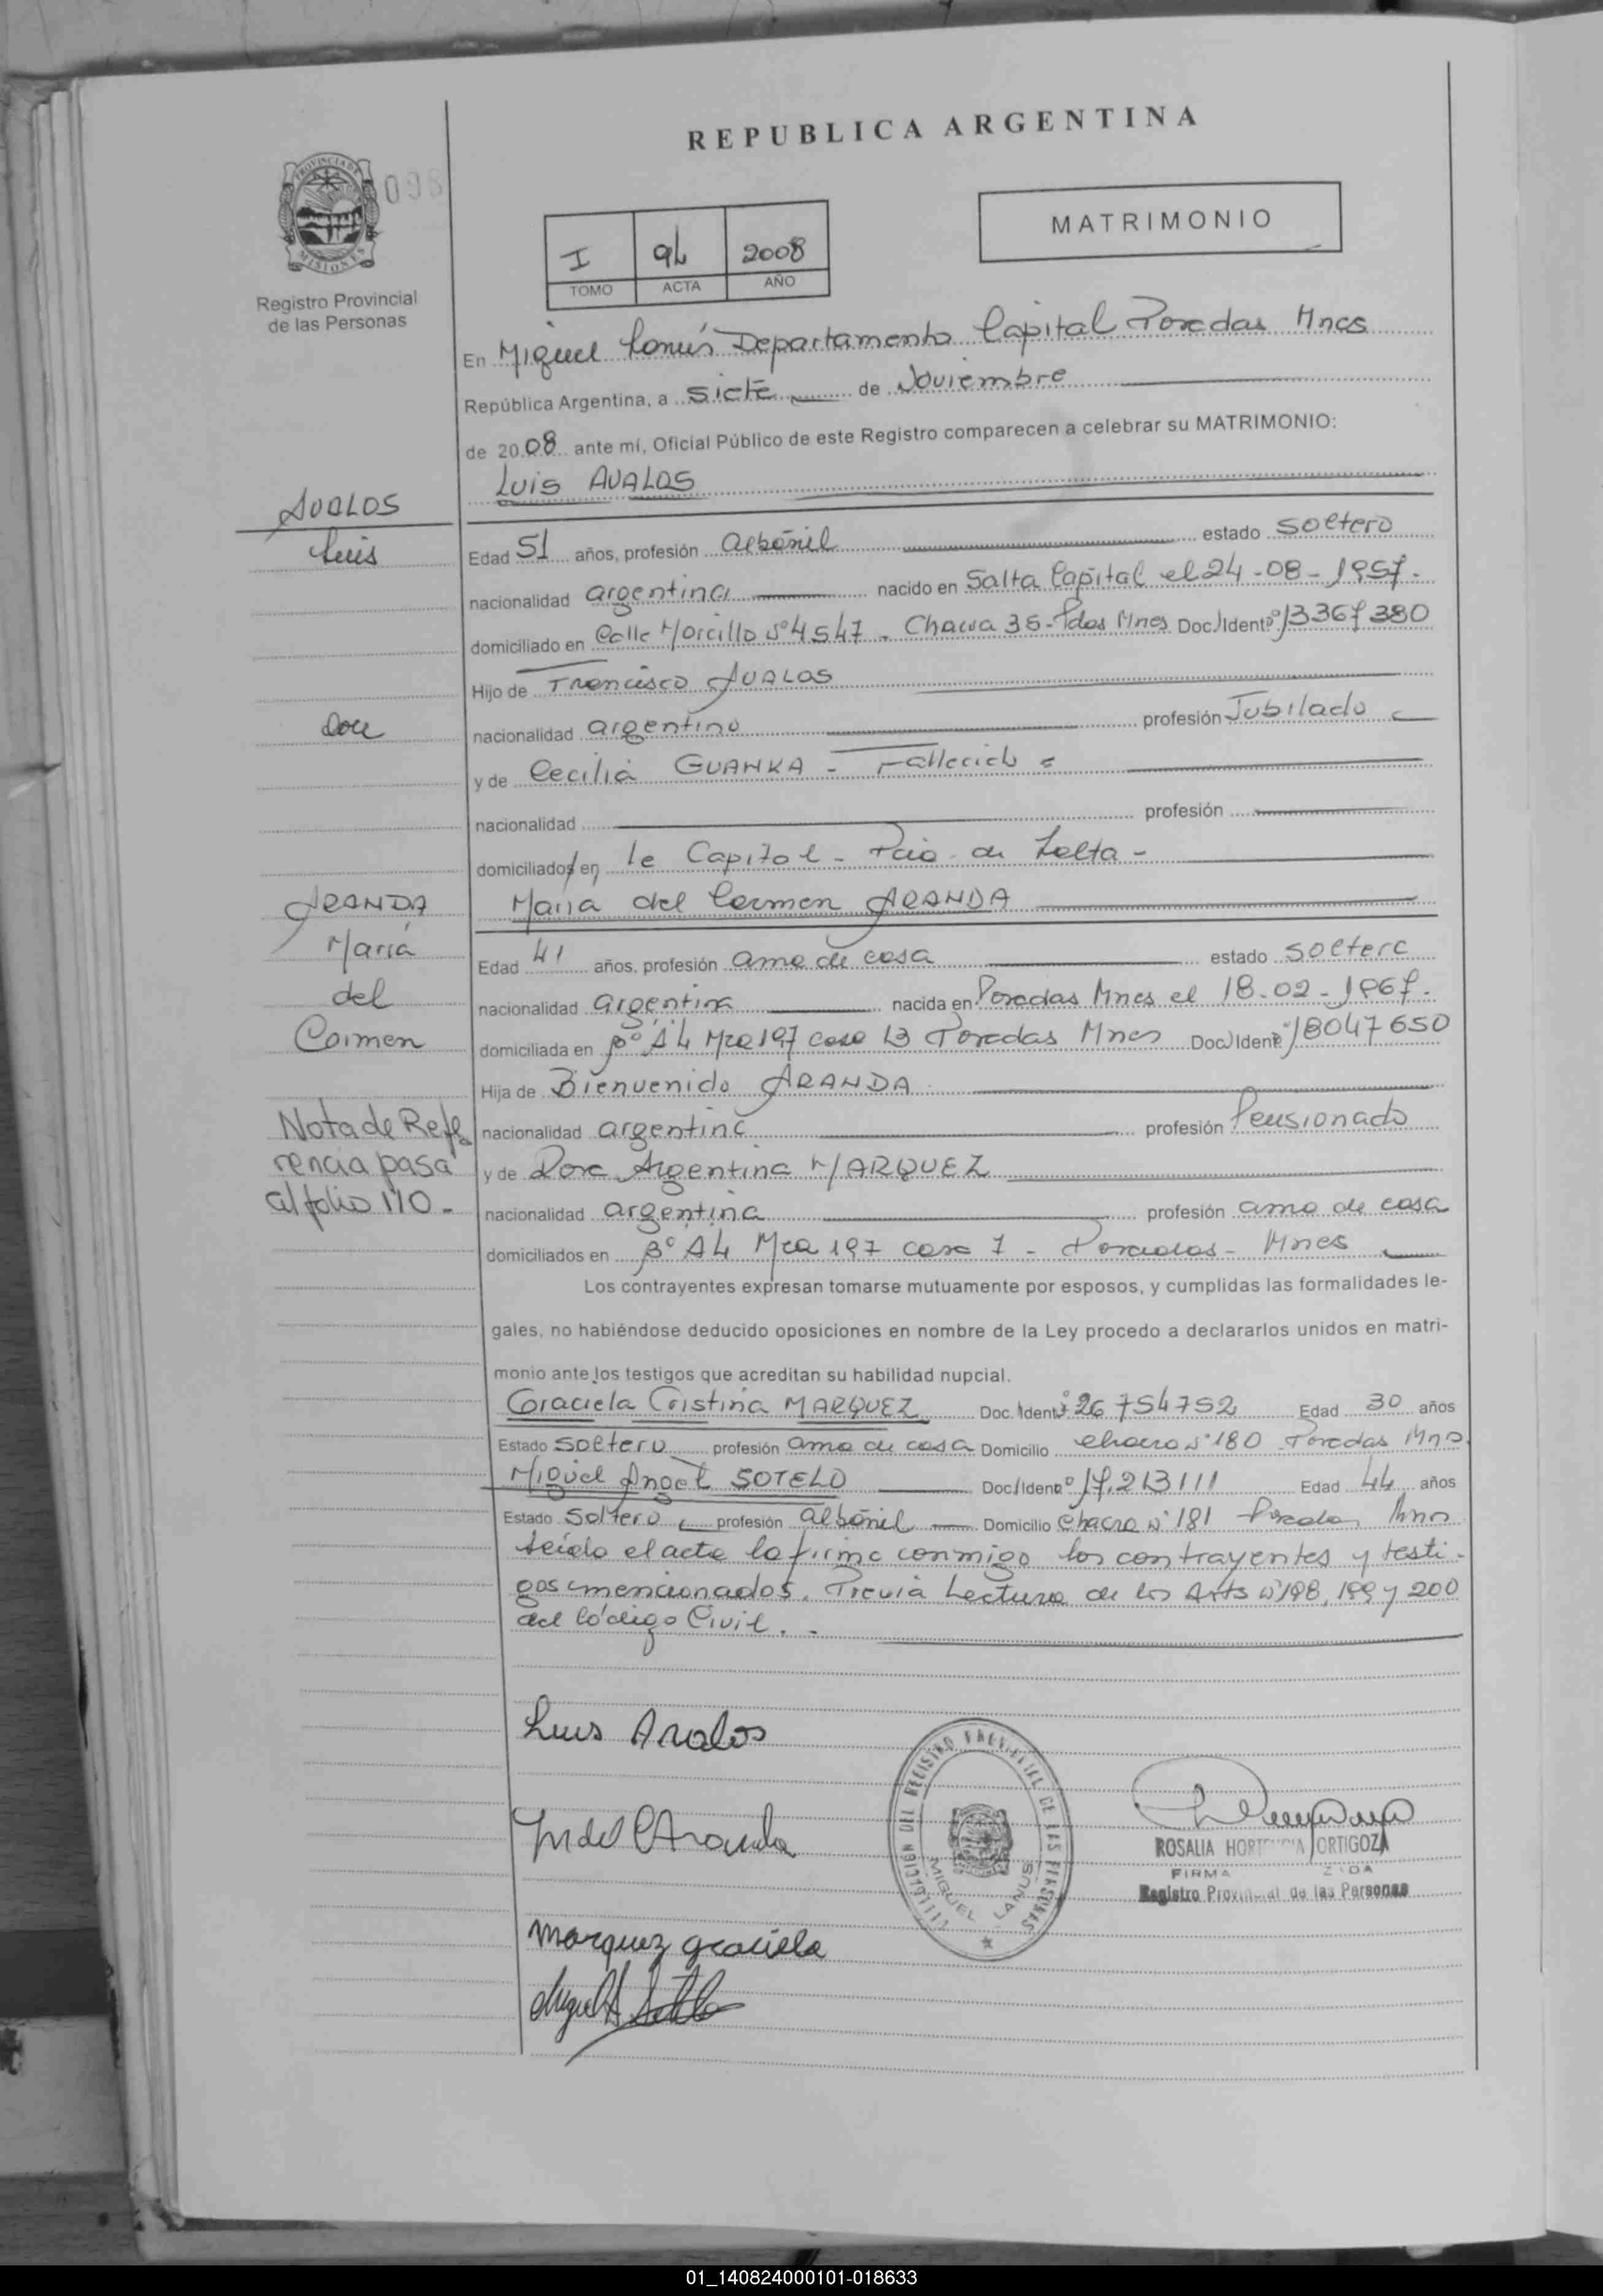 REPUBLICA ARGENTINA
PROVINCIA DE
MISIONES
098
Registro Provincial
de las Personas
I 94 2008
TOMO ACTA AÑO
MATRIMONIO
En Miguel Lanús Departamento Capital Posadas Mnes
República Argentina, a siete de Noviembre
de 2008 ante mí, Oficial Público de este Registro comparecen a celebrar su MATRIMONIO:
Luis AVALOS
AVALOS
Luis
Edad 51 años, profesión albañil estado soltero
nacionalidad argentina nacido en Salta Capital el 24-08-1957.
domiciliado en Calle Morcillo Nº 4547 - Chacra 35 - Pdas Mnes Doc/Identº 13367380
Hijo de Francisco AVALOS
con
nacionalidad argentino profesión Jubilado
y de Cecilia GUANKA - Fallecido =
nacionalidad profesión
domiciliados en la Capital - Pcia. de Salta -
María del Carmen ARANDA
ARANDA
María
del
Carmen
Edad 41 años, profesión ama de casa estado soltera
nacionalidad argentina nacida en Posadas Mnes el 18-02-1967.
domiciliada en Bº A4 Mza 197 casa 13 Posadas Mnes Doc/Identº 18047650
Hija de Bienvenido ARANDA
Nota de Refe
rencia pasa
al folio 110.-
nacionalidad argentina profesión Pensionado
y de Rosa Argentina MARQUEZ
nacionalidad argentina profesión ama de casa
domiciliados en Bº A4 Mza 197 casa 7 - Posadas - Mnes
Los contrayentes expresan tomarse mutuamente por esposos, y cumplidas las formalidades le-
gales, no habiéndose deducido oposiciones en nombre de la Ley procedo a declararlos unidos en matri-
monio ante los testigos que acreditan su habilidad nupcial.
Graciela Cristina MARQUEZ Doc. Identº 26754752 Edad 30 años
Estado soltera profesión ama de casa Domicilio chacra Nº 180 Posadas Mns
Miguel Angel SOTELO Doc/Identº 17.213111 Edad 44 años
Estado Soltero profesión albañil Domicilio Chacra Nº 181 Posadas Mns
Leída el acta la firma conmigo los contrayentes y testi-
gos mencionados. Previa Lectura de los Arts Nº 198, 199 y 200
del Código Civil. -
Luis Avalos
M del C Aranda
DEL REGISTRO PROVINCIAL DE LAS PERSONAS
MIGUEL LANUS
ROSALIA ORTIGOZA
FIRMA
Registro Provincial de las Personas
Marquez graciela
Miguel A Sotelo
01_140824000101-018633